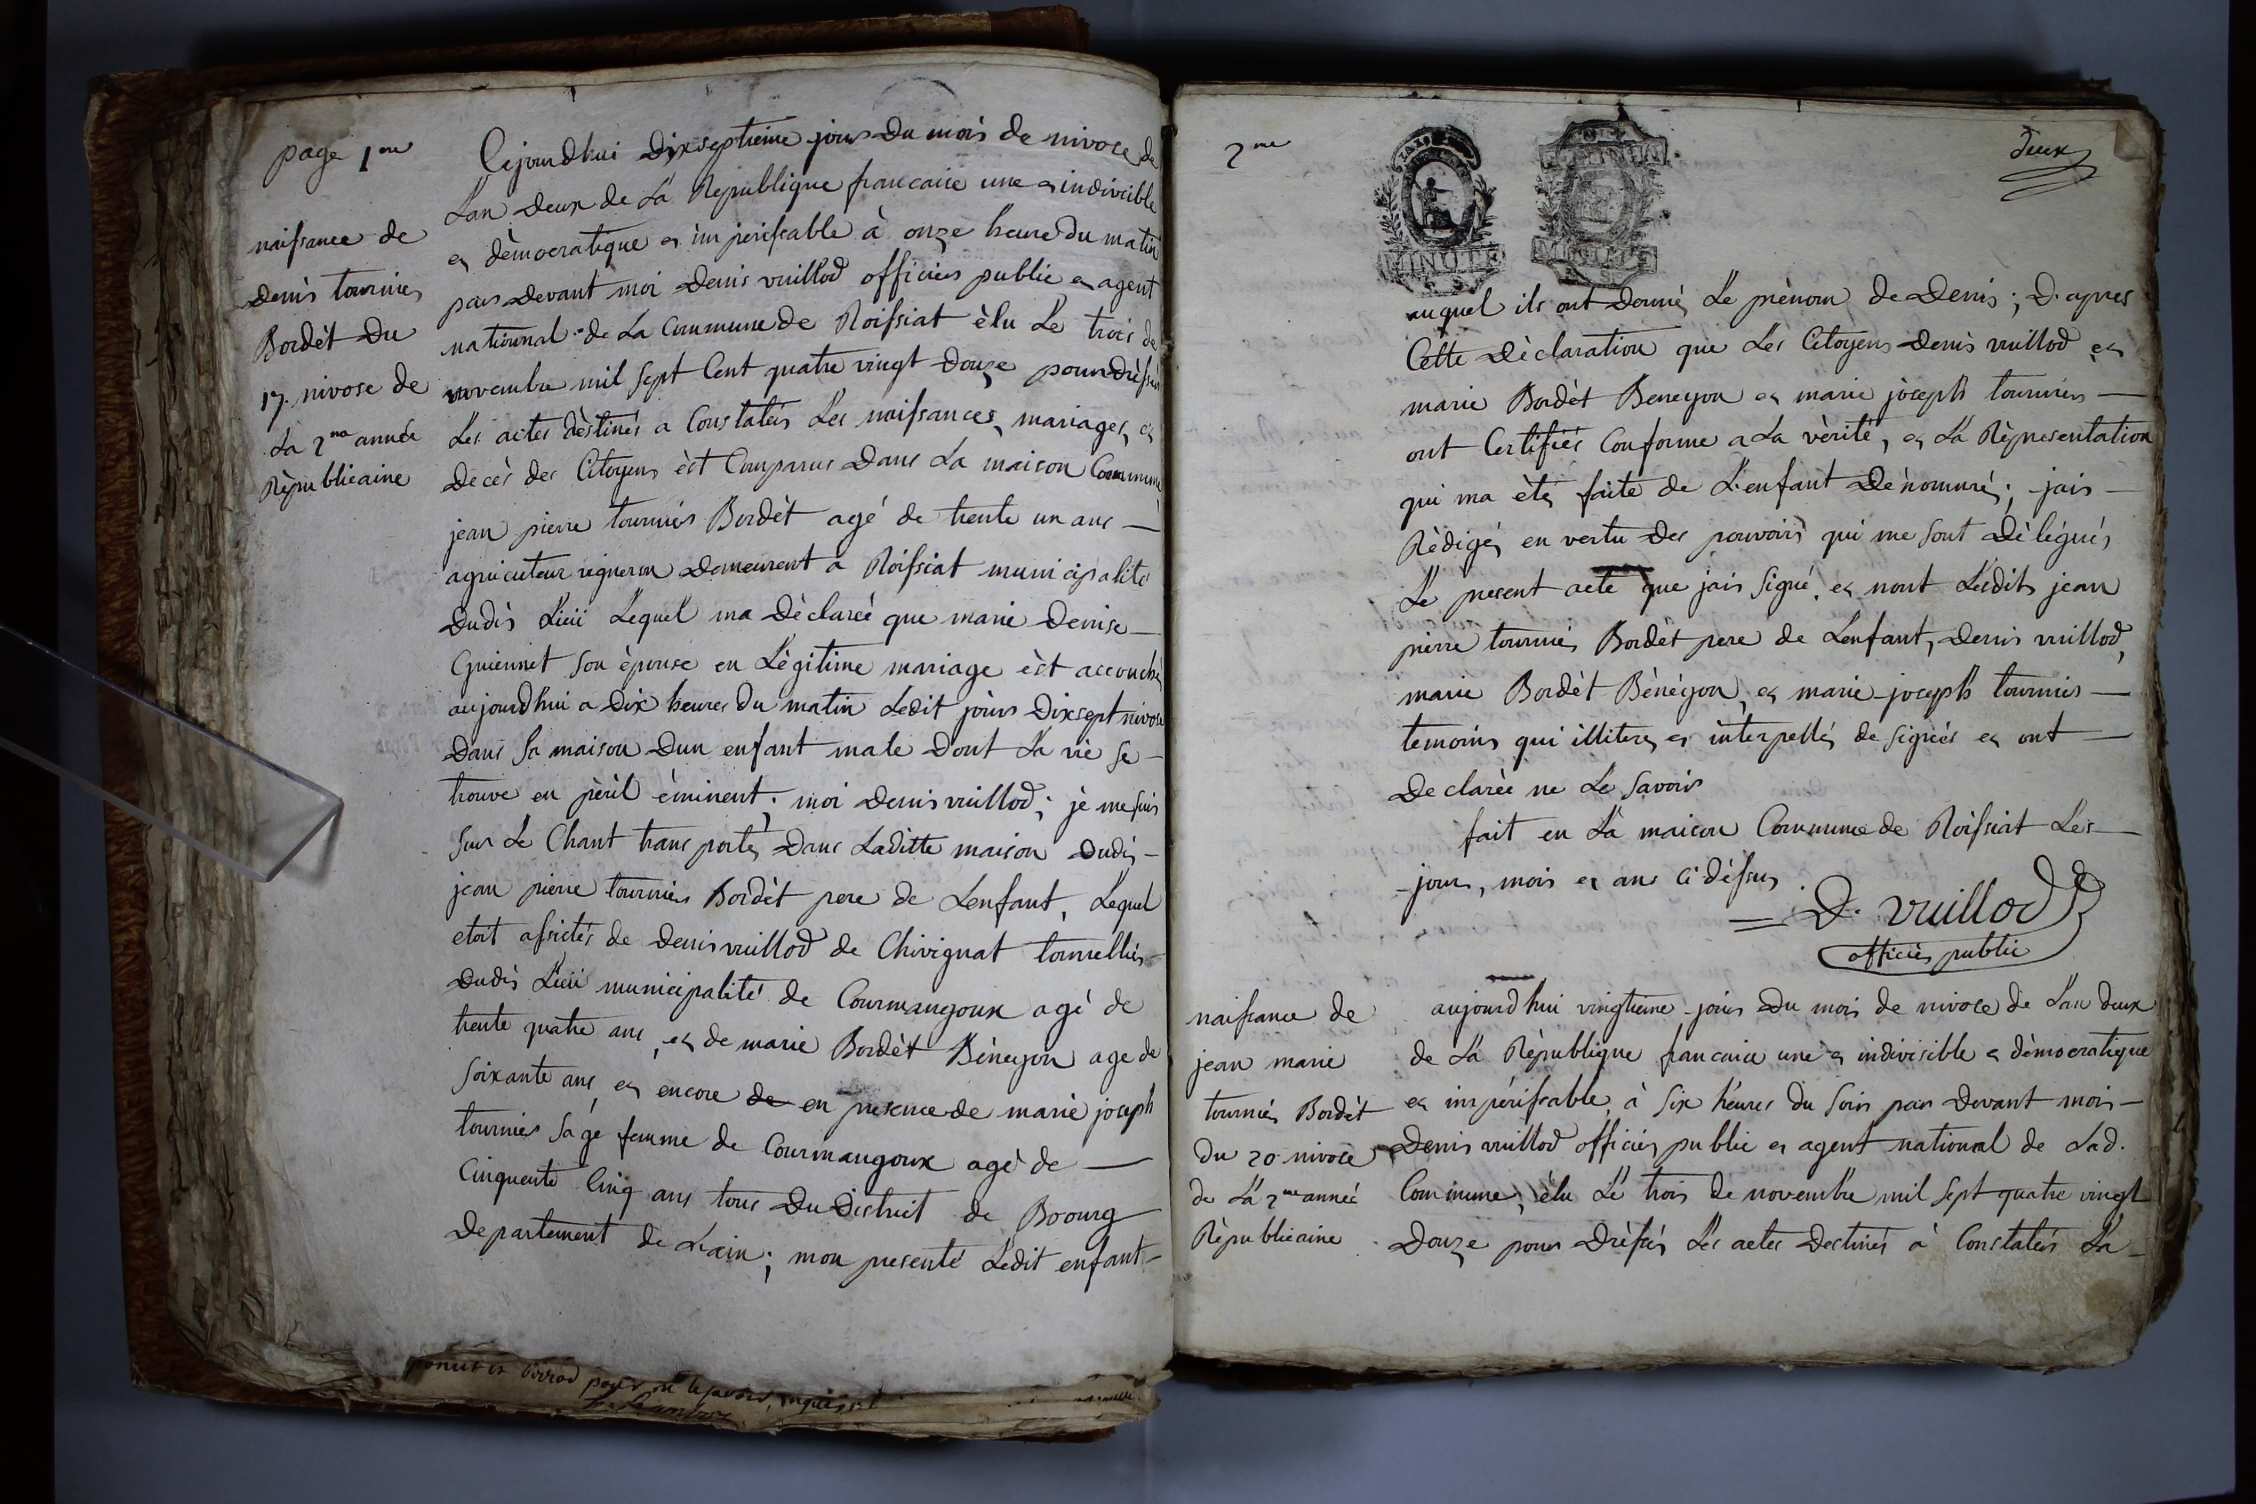 page 1re
naissance de
Denis tournier
Bordèt Du
17. nivose de
La 2me année
Rèpublicaine
Cejourdhui Dixseptieme jour Du mois de nivose de
L'an Deux de La République francaise une et indivisible
et dèmocratique et imperissable à onze heure du matin
par Devant moi Denis vuillod officier public et agent
national de La Commune de Roissiat èlu Le trois de
novembre mil sept Cent quatre vingt Douze pour drèsser
Les actes dèstinés a Constater Les naissances, mariages, et
Decès des Citoyens èst Comparus Dans La maison Commune
jean pierre tournier Bordèt agé de trente un ans —
agricuteur vigneron Demeurent a Roissiat municipalité
Dudit Lieu Lequel ma Dèclareé que marie Denise —
Guiennet son épouse en Lègitime mariage èst accouchée
aujourdhui a Dix heures Du matin Ledit jour Dixsept nivose
Dans sa maison Dun enfant male Dont La vie se —
trouve en pèril èminent; moi Denis vuillod; je me suis
sur Le Chant transporté Dans Laditte maison Dudit —
jean pierre tournier Bordèt pere de Lenfant, Lequel
etoit assistés de Denis vuillod de Chivignat tonnellier —
Dudit Lieu municipalité de Courmangoux agé de
trente quatre ans, et de marie Bordèt Bèneyon age de
soixante ans, et encore de en presence de marie joseph
tournier sage femme de Courmangoux agè de —
Cinquente Cinq ans tous Du District de Boourg
Departement de L'ain; mon presenté Ledit enfant —
2me
deux
MINUTE
auquel ils ont Donné Le prènom de Denis; D'apres
Cette Dèclaration que Les Citoyens Denis vuillod et
marie Bordèt Beneyon et marie joseph tournier —
ont Certifiés Conforme a La vèrité, et La Rèpresentation
qui ma èté faite de L'enfant Dénommé; jais —
Rèdigés en vertu Des pouvoirs qui me sont Dèlégués
Le present acte que jais signé, et nont Lesdits jean
pierre tournier Bordèt pere de Lenfant, Denis vuillod,
marie Bordèt Bènéyon, et marie joseph tournier —
temoins qui illiteres et interpellés de signés et ont —
Declareé ne Le savoir
fait en La maison Commune de Roissiat Les —
jour, mois et an Ci dèssus.
= D. vuillod
officier public
naissance de
jean marie
tournier Bordèt
du 20 nivose
de La 2me année
Rèpublicaine
aujourdhui vingtieme jour Du mois de nivose de L'an deux
de La Rèpublique francaise une et indivisible et dèmocratique
et impérissable, à six heures du soir par Devant mois —
Denis vuillod officier public et agent national de Lad.
Commune, èlu Le trois de novembre mil sept quatre vingt
Douze pour Drèssés Les actes Destinés à Constater La —